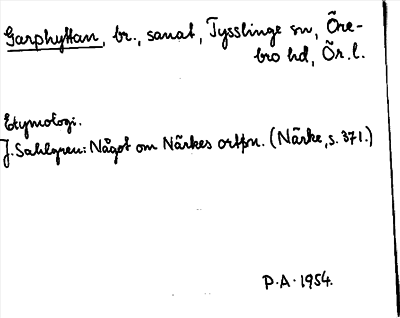 Garphyttan, br., sanat, Tysslinge sn, Öre-
bro hd, Ör.l.
Etymologi.
J. Sahlgren: Något om Närkes ortpn. (Närke, s. 371.)
P.A. 1954.